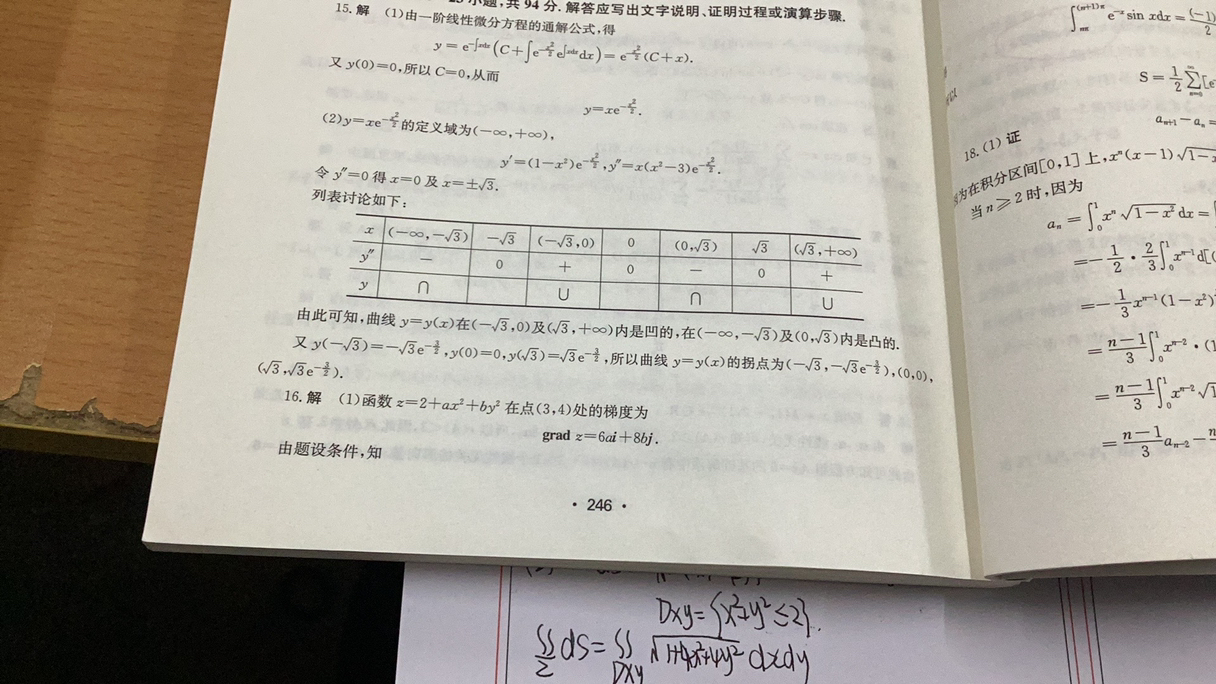 小题,共 94 分. 解答应写出文字说明、证明过程或演算步骤.
15. 解 (1)由一阶线性微分方程的通解公式,得
y = e^{-∫xdx}(C+∫e^{-x²/2}e^{∫xdx}dx)= e^{-x²/2}(C+x).
又 y(0)=0,所以 C=0,从而
y=xe^{-x²/2}.
(2)y=xe^{-x²/2}的定义域为(-∞,+∞),
y′=(1-x²)e^{-x²/2},y″=x(x²-3)e^{-x²/2}.
令 y″=0 得 x=0 及 x=±√3.
列表讨论如下:
x (-∞,-√3) -√3 (-√3,0) 0 (0,√3) √3 (√3,+∞)
y″ - 0 + 0 - 0 +
y ∩ ∪ ∩ ∪
由此可知,曲线 y=y(x)在(-√3,0)及(√3,+∞)内是凹的,在(-∞,-√3)及(0,√3)内是凸的.
又 y(-√3)=-√3e^{-3/2},y(0)=0,y(√3)=√3e^{-3/2},所以曲线 y=y(x)的拐点为(-√3,-√3e^{-3/2}),(0,0),
(√3,√3e^{-3/2}).
16. 解 (1)函数 z=2+ax²+by² 在点(3,4)处的梯度为
grad z=6ai+8bj.
由题设条件,知
· 246 ·
∫_{nπ}^{(n+1)π} e^{-x}sin xdx=(-1)
S=1/2 ∑_{n=0}^{∞}[e
a_{n+1}-a_n=
18. (1) 证
为在积分区间[0,1]上,xⁿ(x-1)√1-x
当 n≥2 时,因为
a_n=∫_0^1 xⁿ√1-x² dx=
=-1/2·2/3∫_0^1 x^{n-1}d[(
=-1/3 x^{n-1}(1-x²)
=n-1/3∫_0^1 x^{n-2}·(1
=n-1/3∫_0^1 x^{n-2}√1
=n-1/3 a_{n-2}-n
Dxy={x²+y²≤2}.
∬_Σ dS=∬_{Dxy} √1+4x²+4y² dxdy